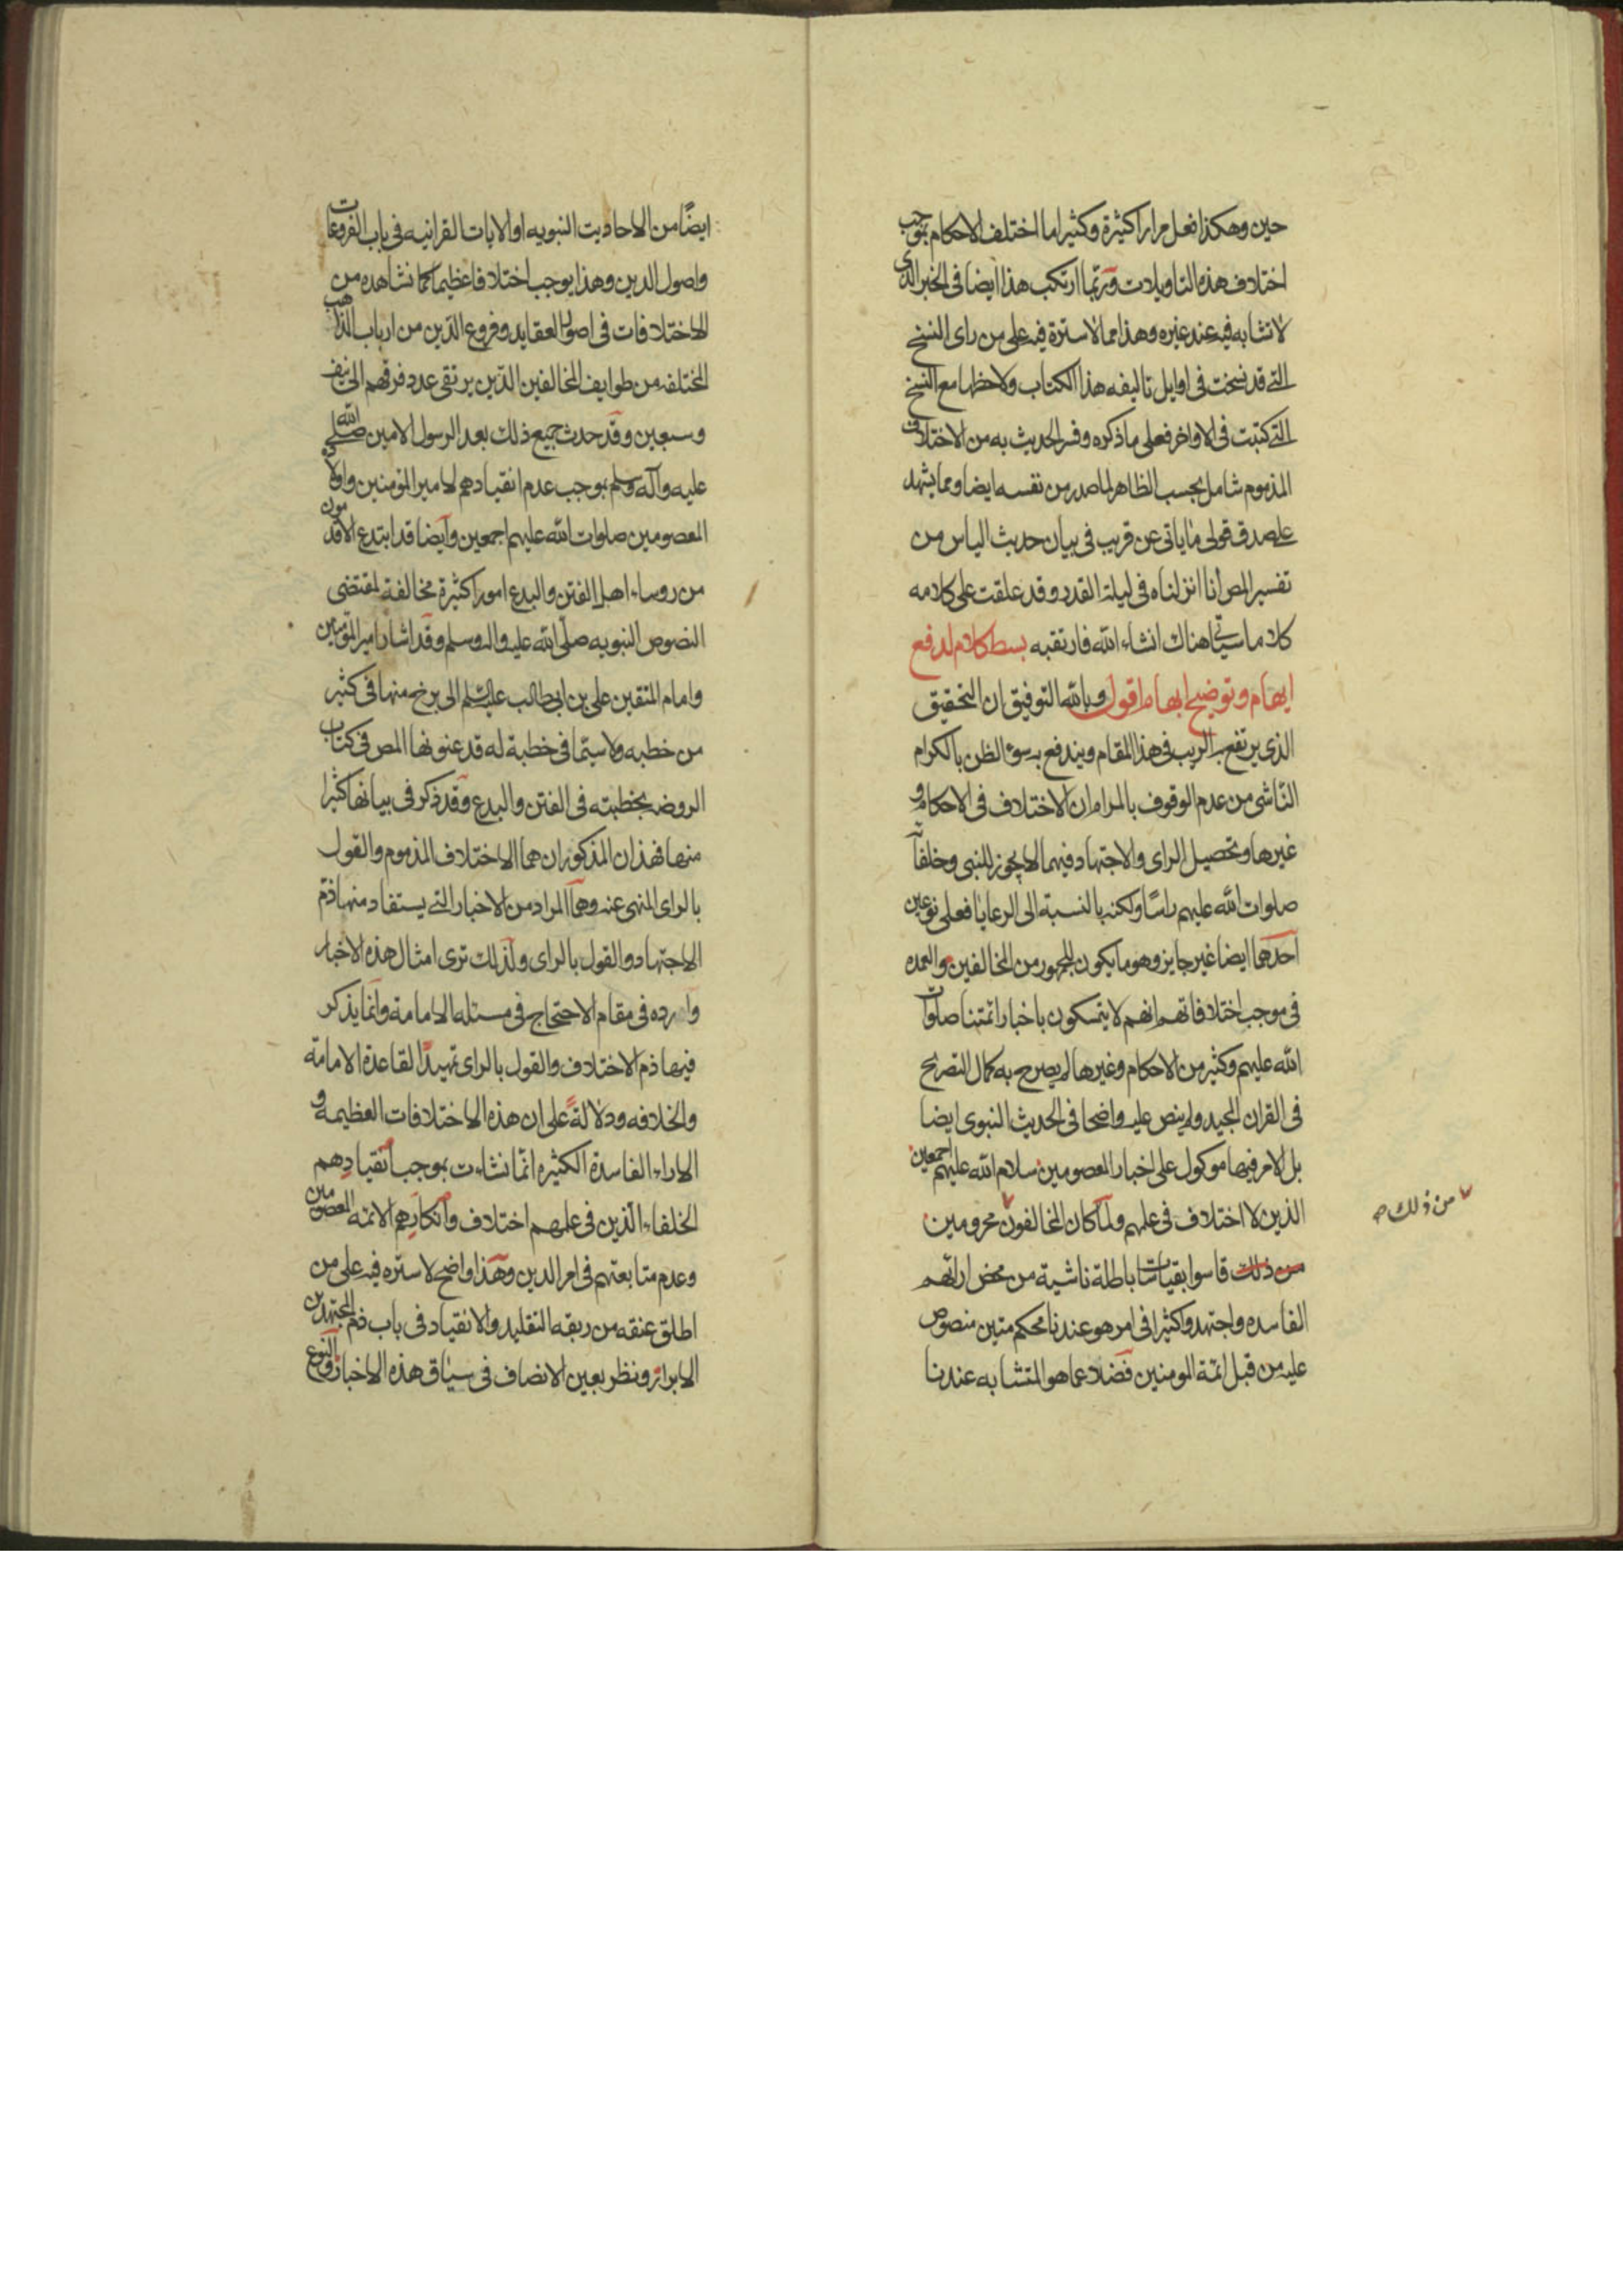 حين وهكذا فعل مرارا كثيرة وكثيرا ما اختلف الاحكام بموجب
اختلاف هذه التاويلات وربّما ارتكب هذا ايضا فى الخبر الذى
لا تشابه فيه عند غيره وهذا مما لا سترة فيه على من راى النسخ
التى قد نسخت فى اوايل تاليفه هذا الكتاب ولاحظها مع النسخ
التى كتبت فى الاواخر فعلى ما ذكره وفسر الحديث به من الاختلاف
المذموم شامل بحسب الظاهر لما صدر من نفسه ايضا ومما يشهد
على صدق قولى ما ياتى عن قريب فى بيان حديث الياس من
تفسير المص انا انزلناه فى ليلة القدر وقد علقت على كلامه
كلاما سياتى هناك انشاء الله فارتقبه بسط كلام لدفع
ايهام وتوضيح ابهام اقول وبالله التوفيق ان التحقيق
الذى يرتفع به الريب فى هذا المقام ويندفع به سوء الظن بالكرام
الناشى من عدم الوقوف بالمرام ان الاختلاف فى الاحكام و
غيرها وتحصيل الراى والاجتهاد فيهما لا يجوز للنبى وخلفائه
صلوات الله عليهم راسًا ولكنه بالنسبة الى الرعايا فعلى نوعين
احدهما ايضا غير جايز وهو ما يكون للجمهور من المخالفين والعمده
فى موجب اختلافاتهم انهم لا يتمسكون باخبار ائمتنا صلوات
الله عليهم وكثير من الاحكام وغيرها لم يصرح به كمال التصريح
فى القران المجيد ولم ينص عليه واضحا فى الحديث النبوى ايضا
بل الامر فيها موكول على اخبار المعصومين سلام الله عليهم اجمعين
الذين لا اختلاف فى علمهم ولمّا كان المخالفون محرومين
من ذلك صح
من ذلك قاسوا بقياسات باطلة ناشية من محض ارائهم
الفاسده واجتهدوا كثيرا فى امر هو عندنا محكم متين منصوص
عليه من قبل ائمة المومنين فضلا عما هو المتشابه عندنا
ايضًا من الاحاديت النبويه او الايات القرانيه فى باب الفروعات
واصول الدين وهذا يوجب اختلافا عظيما كما نشاهده من
الاختلافات فى اصول العقايد وفروع الدّين من ارباب المذاهب
المختلفه من طوايف المخالفين الذين يرتقى عدد فرقهم الى نيف
وسبعين وقد حدث جميع ذلك بعد الرسول الامين صلى الله
عليه وآله وسلم بموجب عدم انقيادهم لامير المؤمنين واولاده
المعصومين صلوات الله عليهم اجمعين وايضا قد ابتدع الاقدمون
من روساء اهل الفتن والبدع امورا كثيرة مخالفة لمقتضى
النصوص النبويه صلّى الله عليه واله وسلم وقد اشار امير المؤمنين
وامام المتقين على بن ابى طالب عليه السّلم الى برخ منها فى كثير
من خطبه ولا سيّما فى خطبة له قد عنونها المص فى كتاب
الروضه بخطبته فى الفتن والبدع وقد ذكر فى بيانها كثيرا
منها فهذان المذكوران هما الاختلاف المذموم والقول
بالراى المنهى عنه وهما المراد من الاخبار التى يستفاد منها ذمّ
الاجتهاد والقول بالراى ولذلك ترى امثال هذه الاخبار
وارده فى مقام الاحتجاج فى مسئله الامامة وانما يذكر
فيها ذم الاختلاف والقول بالراى تمهيدًا لقاعدة الامامة
والخلافه ودلالةً على ان هذه الاختلافات العظيمة و
الاراء الفاسدة الكثيره انّما نشاءت بموجب انقيادهم
الخلفاء الّذين فى علمهم اختلاف وانكارهم الائمّه المعصومين
وعدم متابعتهم فى امر الدين وهذا واضح لا ستره فيه على من
اطلق عنقه من ربقه التقليد والانقياد فى باب ذم المجتهدين
الابرار ونظر بعين الانصاف فى سياق هذه الاخبار والنوع